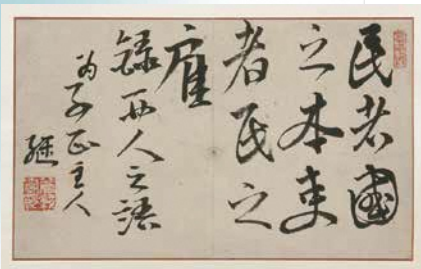 民者國
之本吏
者民之
雇
錄西人之語
為子正主人
繼